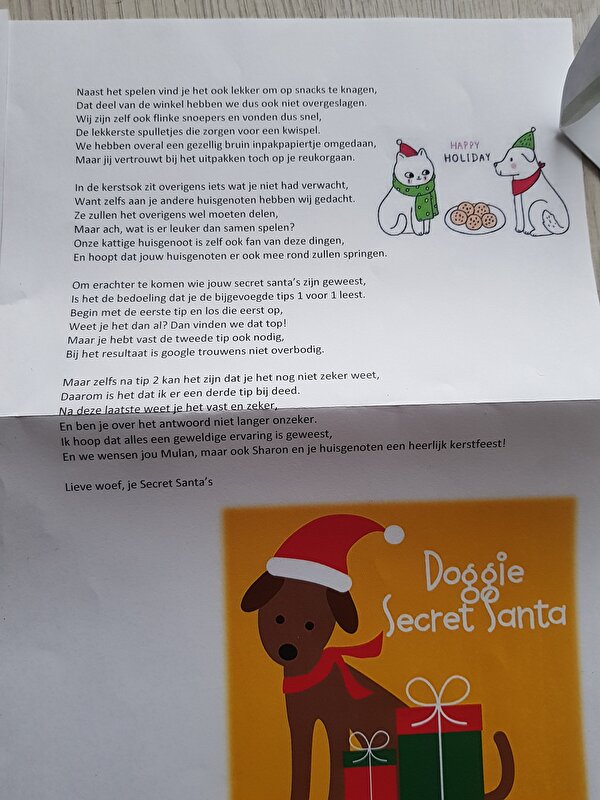 Naast het spelen vind je het ook lekker om op snacks te knagen,
Dat deel van de winkel hebben we dus ook niet overgeslagen.
Wij zijn zelf ook flinke snoepers en vonden dus snel,
De lekkerste spulletjes die zorgen voor een kwispel.
We hebben overal een gezellig bruin inpakpapiertje omgedaan,
Maar jij vertrouwt bij het uitpakken toch op je reukorgaan.
HAPPY
HOLIDAY
In de kerstsok zit overigens iets wat je niet had verwacht,
Want zelfs aan je andere huisgenoten hebben wij gedacht.
Ze zullen het overigens wel moeten delen,
Maar ach, wat is er leuker dan samen spelen?
Onze kattige huisgenoot is zelf ook fan van deze dingen,
En hoopt dat jouw huisgenoten er ook mee rond zullen springen.
Om erachter te komen wie jouw secret santa's zijn geweest,
Is het de bedoeling dat je de bijgevoegde tips 1 voor 1 leest.
Begin met de eerste tip en los die eerst op,
Weet je het dan al? Dan vinden we dat top!
Maar je hebt vast de tweede tip ook nodig,
Bij het resultaat is google trouwens niet overbodig.
Maar zelfs na tip 2 kan het zijn dat je het nog niet zeker weet,
Daarom is het dat ik er een derde tip bij deed.
Na deze laatste weet je het vast en zeker,
En ben je over het antwoord niet langer onzeker.
Ik hoop dat alles een geweldige ervaring is geweest,
En we wensen jou Mulan, maar ook Sharon en je huisgenoten een heerlijk kerstfeest!
Lieve woef, je Secret Santa's
Doggie
Secret Santa